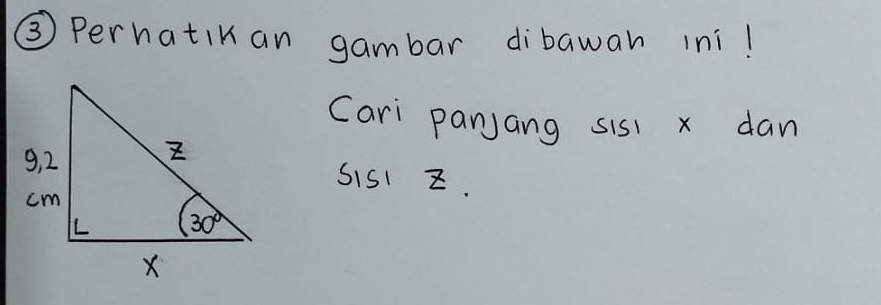 3 Perhatikan gambar dibawah ini !
Cari panjang sisi x dan
sisi z.
9,2
cm
z
30°
x